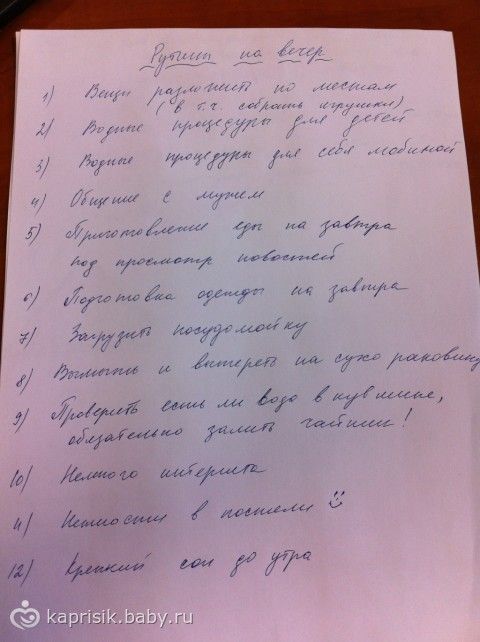 Рутины на вечер
1) Вещи разложить по местам
(в т.ч. собрать игрушки)
2) Водные процедуры для детей
3) Водные процедуры для себя любимой
4) Общение с мужем
5) Приготовление еды на завтра
под просмотр новостей
6) Подготовка одежды на завтра
7) Загрузить посудомойку
8) Вымыть и вытереть на сухо раковину
9) Проверить есть ли вода в кувшине,
обязательно залить чайник!
10) Немного интернета
11) Нежности в постели
12) Крепкий сон до утра
kaprisik.baby.ru